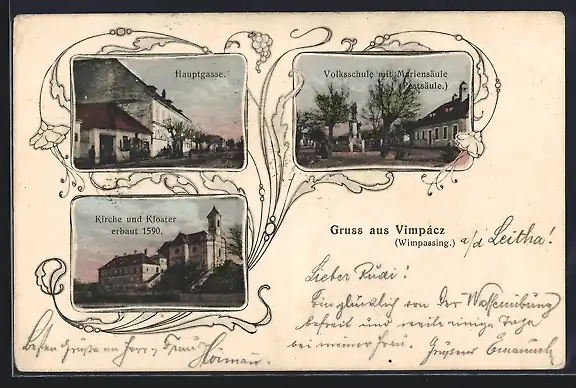 Hauptgasse.
Volksschule mit Mariensäule
(Pestsäule.)
Kirche und Kloster
erbaut 1590.
Gruss aus Vimpácz
(Wimpassing.)
a/d Leitha!
Lieber Rudi!
Bin glücklich von der Waffenübung
befreit und weile einige Tage
bei meiner
Besten Grüße an Herr u. Frau